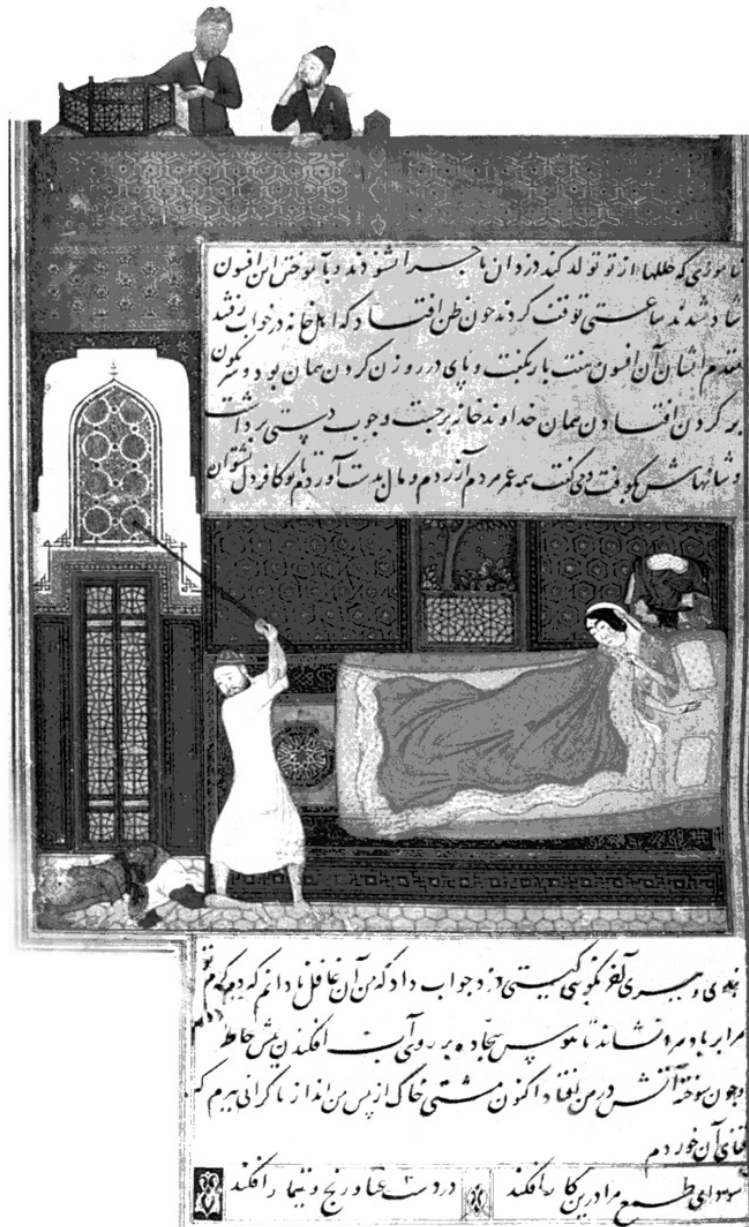 ناموزی که خللها از تو تولد کند دزدان ماجرا بشنودند و بآموختن این افسون
شاد شدند ساعتی توقف کردند چون ظن افتاد که اهل خانه در خواب رفتند
مقدم ایشان آن افسون هفت بار بگفت و پای در روزن کردن همان بود و سرنگون
بر گردن افتادن همان خداوند خانه برجست و چوب دستی برداشت
و شانهاش بکوفت و می گفت همه عمر مردم آزردم و مال بدست آوردم تا تو کافر دل پشتوان
بندی و ببری آخر نگویی کیستی دزد جواب داد که من آن غافل نادانم که دم گرم تو
مرا بر باد نشاند تا هوس سجاده بر روی آب افکندن پیش خاطر
و چون سوخته آتش در من افتاد اکنون مشتی خاک از پس من انداز تا گرانی ببرم که
قفای آن خوردم
سودای طمع مرا درین کار افکند در دست عنا و رنج و تیمار افکند